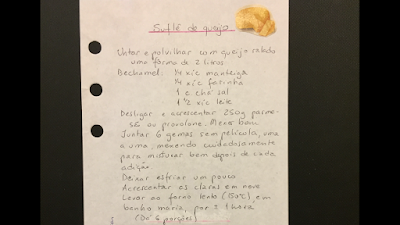 Suflê de queijo
Untar e polvilhar com queijo ralado
uma forma de 2 litros
Bechamel: 1/4 xíc manteiga
1/4 xíc farinha
1 c chá sal
1 1/2 xíc leite
Desligar e acrescentar 250g parme-
são ou provolone. Mexer bem
Juntar 6 gemas sem película, uma
a uma, mexendo cuidadosamente
para misturar bem depois de cada
adição
Deixar esfriar um pouco
Acrescentar as claras em neve
Levar ao forno lento (150°C) em
banho maria, por ± 1 hora
(Dá 6 porções)